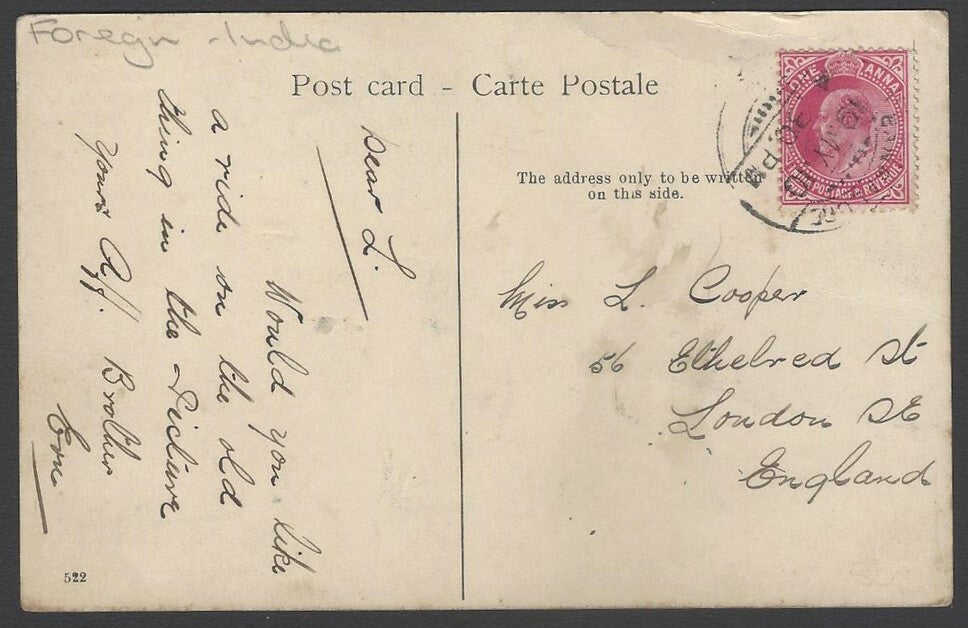 Foregn - India
Post card - Carte Postale
ONE ANNA
INDIA POSTAGE & REVENUE
The address only to be written
on this side.
Dear L.
Would you like
a ride on the old
thing in the Picture
Yours Aff. Brother
Ern
Miss L. Cooper
56 Ethelred St
London SE
England
522